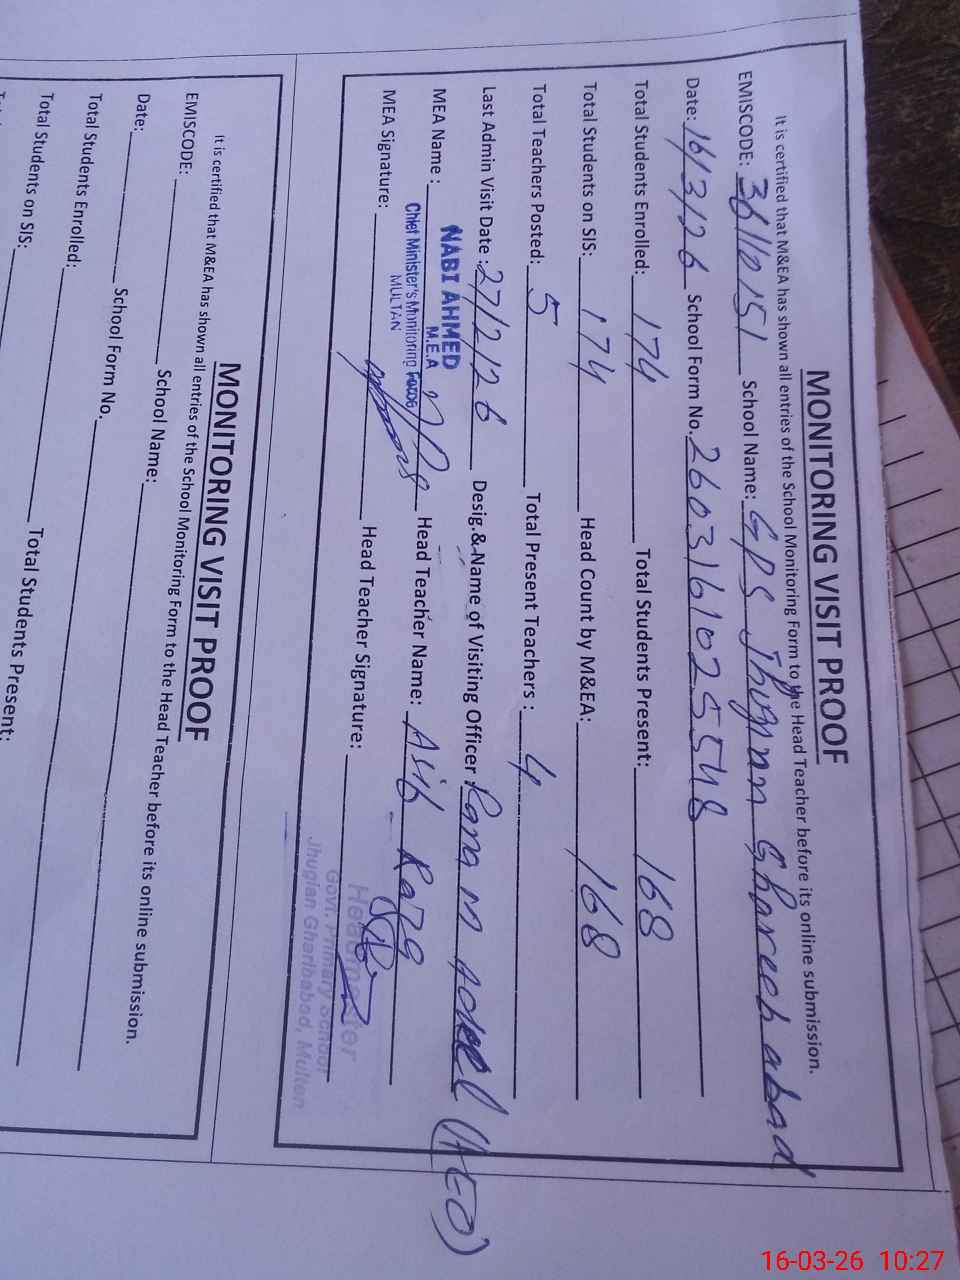 MONITORING VISIT PROOF
It is certified that M&EA has shown all entries of the School Monitoring Form to the Head Teacher before its online submission.
EMISCODE: 36110151 School Name: GPS Jhugian Ghareeb abad
Date: 16/3/26 School Form No. 2603161025548
Total Students Enrolled: 174 Total Students Present: 168
Total Students on SIS: 174 Head Count by M&EA: 168
Total Teachers Posted: 5 Total Present Teachers : 4
Last Admin Visit Date : 27/2/26 Desig.&Name of Visiting Officer Rana M Adeel (AEO)
MEA Name : NABI AHMED
M.E.A
Chief Minister's Monitoring Force
MULTAN
Head Teacher Name: Asif Raza
MEA Signature: Head Teacher Signature:
Headmaster
Govt. Primary School
Jhugian Gharibabad, Multan
MONITORING VISIT PROOF
It is certified that M&EA has shown all entries of the School Monitoring Form to the Head Teacher before its online submission.
EMISCODE: School Name:
Date: School Form No.
Total Students Enrolled: Total Students Present:
Total Students on SIS:
16-03-26 10:27